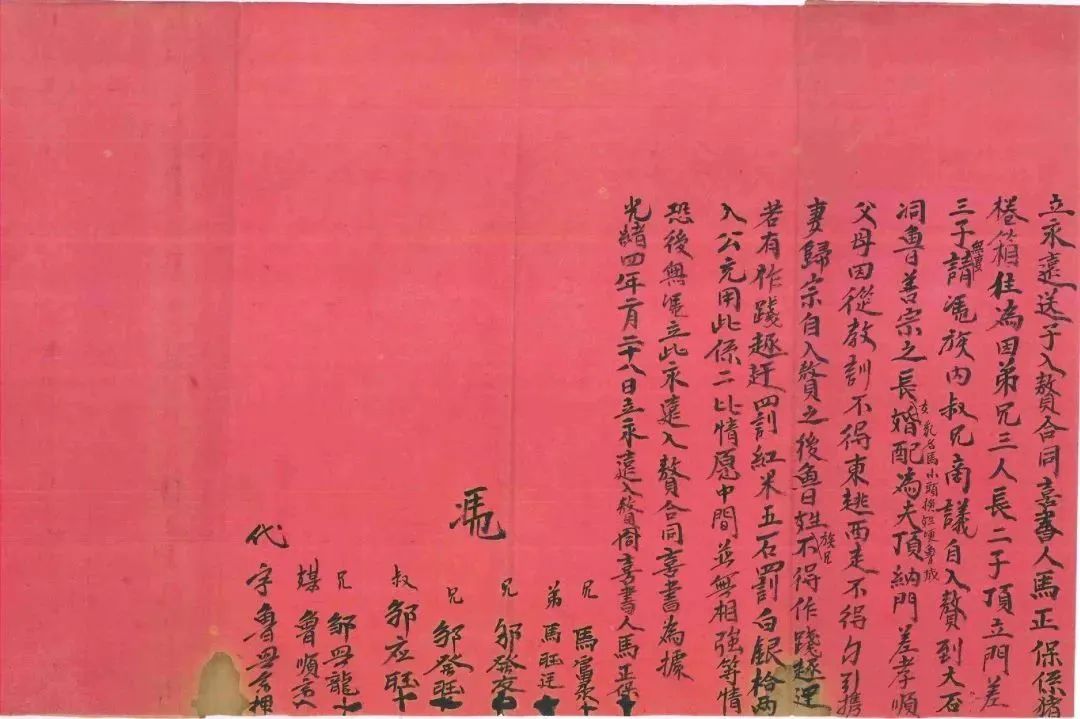 立永遠送子入贅合同喜書人馬正保係猪
棬箱住為因弟兄三人長二子頂立門差
三子請憑族内叔兄商議自入贅到大石
洞魯善宗之長婚配為夫頂納門差孝順
女乳名馬小頭換姓更魯成
父母因從教訓不得東逃西走不得勾引携
妻歸宗自入贅之後魯姓不得作踐趕逐
族兄
若有作踐趕逐四罰紅米五石四罰白銀拾兩
入公充用此係二比情愿中間並無相強等情
恐後無憑立此永遠入贅合同喜書為據
光緒四年二月二十八日立永遠入贅同喜書人馬正保十
憑
兄 馬富
弟 馬旺廷十
兄 邹發
兄 邹發旺十
叔 邹应旺十
兄 邹世龍十
媒 魯順
代字魯世 押